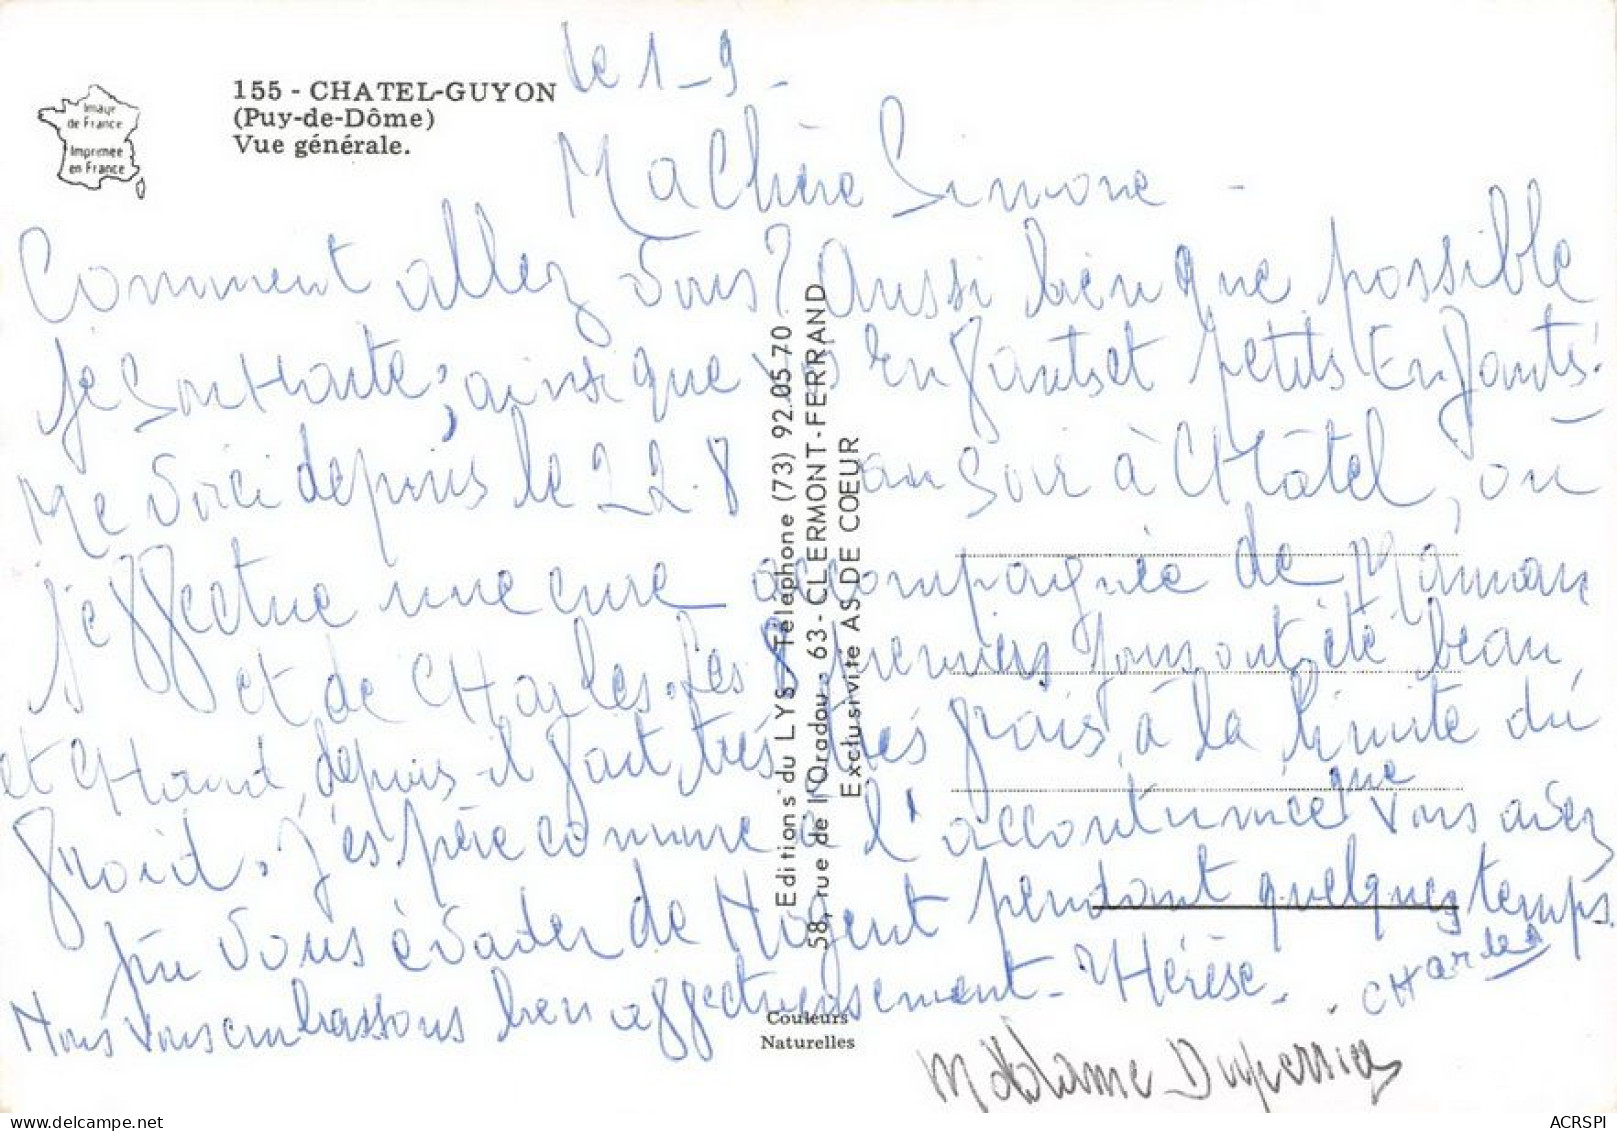 le 1-9-
155 - CHATEL-GUYON
(Puy-de-Dôme)
Vue générale.
Image
de France
Imprimée
en France
Ma Chère Simone -
Comment allez vous? Aussi bien que possible
je souhaite, ainsi que vos Enfants et petits Enfants.
Me voici depuis le 22.8 au soir à CHâtel, où
j'effectue une cure accompagnée de Maman
et de CHarles. Les 8 premiers jours ont été beau
et CHaud, depuis il fait très très frais, à la limite du
froid. J'espère comme à l'accoutumée que vous avez
pu vous évader de Nogent pendant quelques temps.
Nous vous embrassons bien affectueusement - THérèse - . CHarles
Madame Duperrier
Editions du LYS - Téléphone (73) 92.05.70
58, rue de l'Oradou - 63-CLERMONT-FERRAND
Exclusivité AS DE CŒUR
Couleurs
Naturelles
ACRSPI